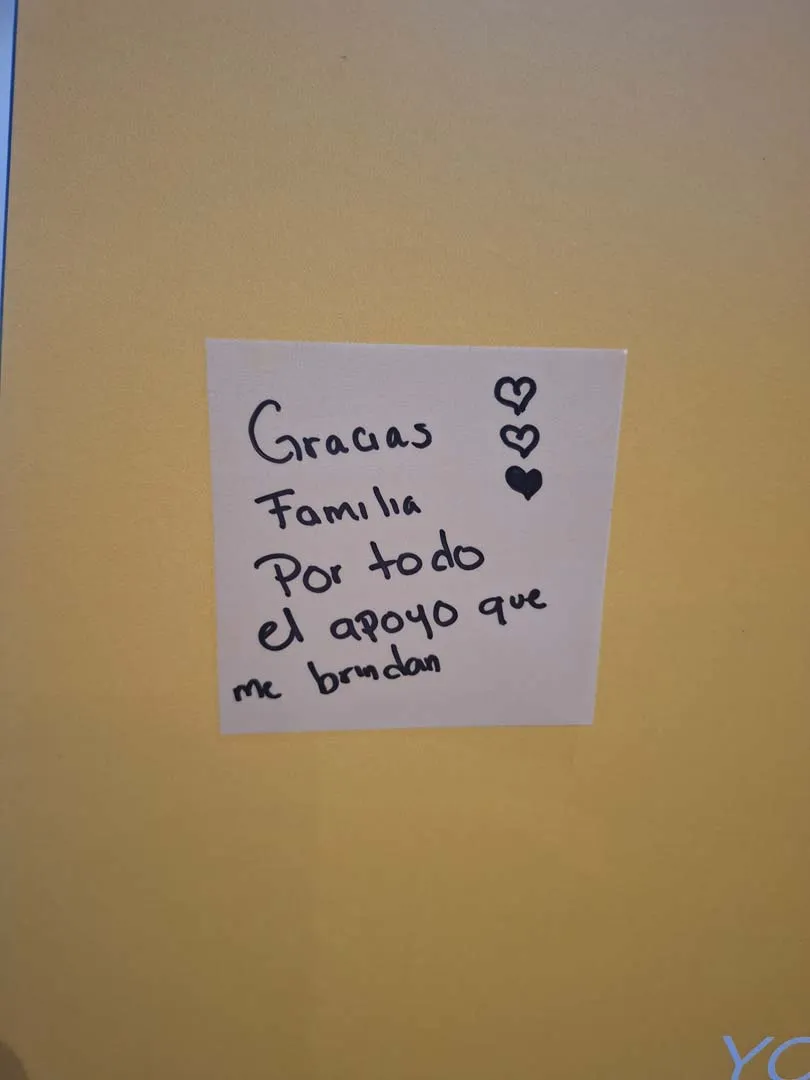 Gracias
Familia
Por todo
el apoyo que
me brindan
YO